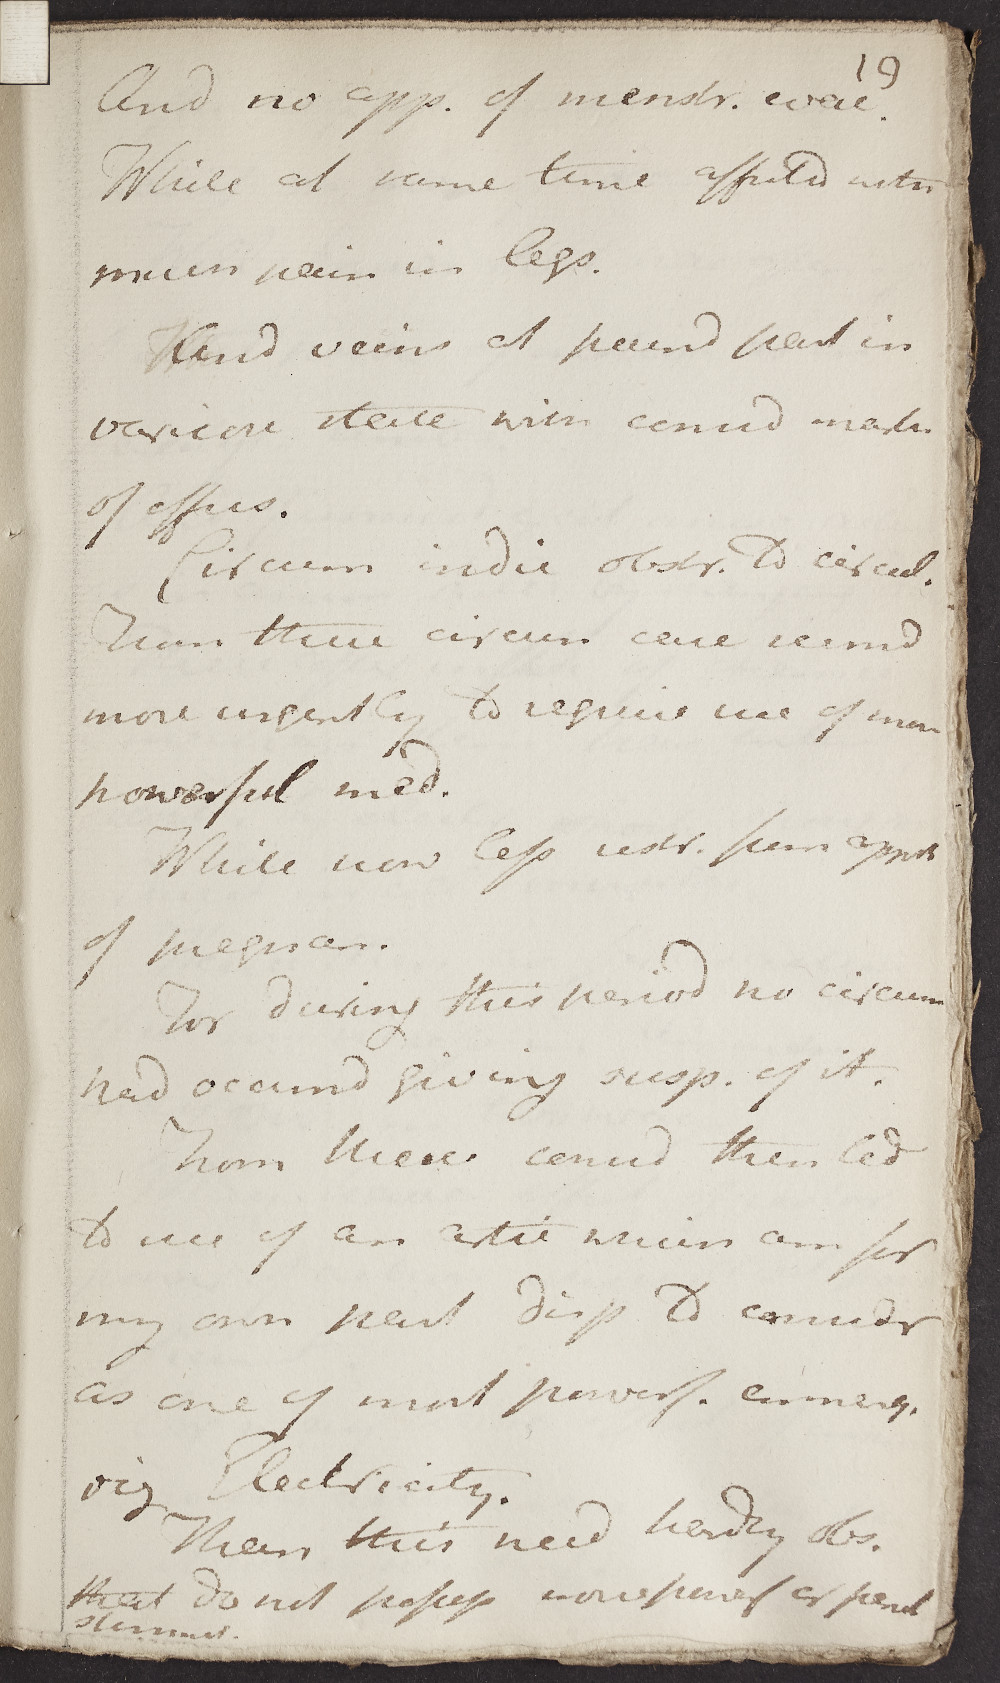 19
And no app. of menstr. evac.
While at same time affectd with
much pain in legs.
Hard veins at paind part in
varicose state with consid mark
of effus.
Circum indic obstr. to circul.
From these circum case seemd
more urgently to require use of more
powerful med.
While now less restr. from
of pregnan.
For during this period no circum
had occurrd giving susp. of it.
From these consid then led
to use of an artic which am for
my own part disp to considr
as one of most powerf. emmenag.
viz Electricity.
Than this need hardly obs.
that do not possess more powerf or
stimul.